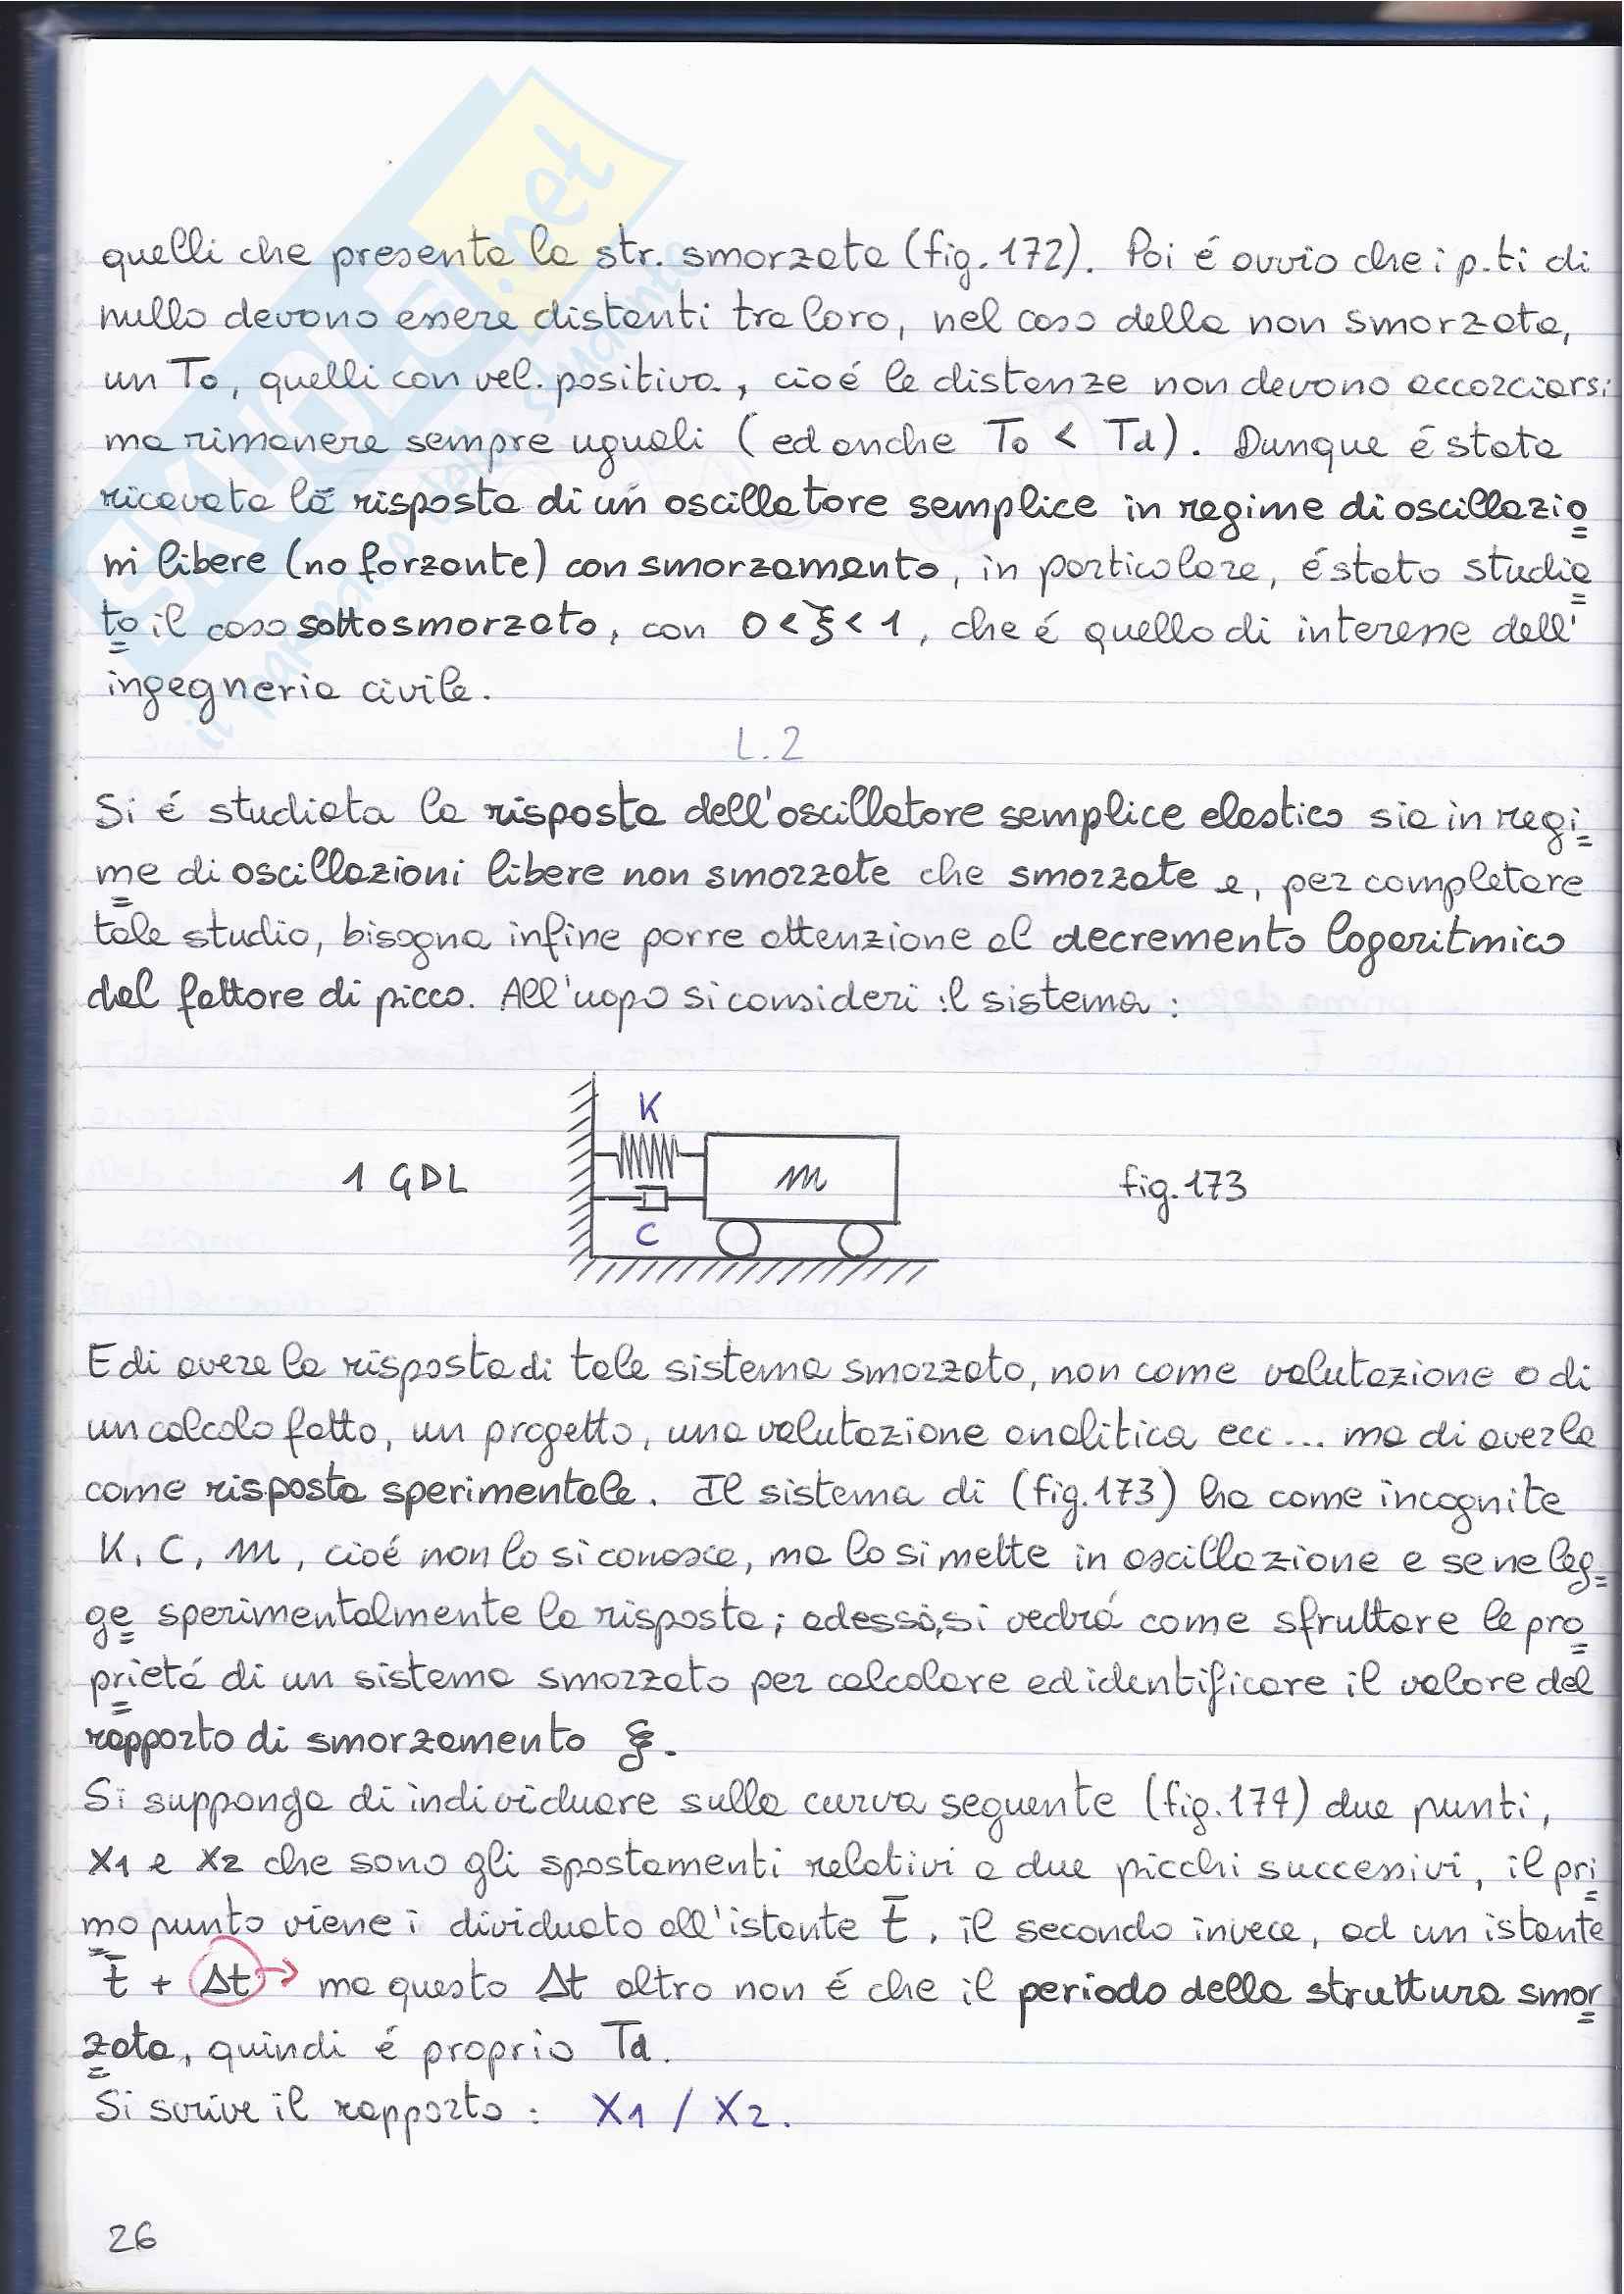 quelli che presenta la str. smorzata (fig. 172). Poi é ovvio che i p.ti di
nullo devono essere distanti tra loro, nel caso della non smorzata,
un To, quelli con vel. positiva, cioé le distanze non devono accorciarsi
ma rimanere sempre uguali (ed anche To < Td). Dunque é stata
ricavata la risposta di un oscillatore semplice in regime di oscillazio
ni libere (no forzante) con smorzamento, in particolare, é stato studia
to il caso sottosmorzato, con 0 < ξ < 1, che é quello di interesse dell'
ingegneria civile.
L.2
Si é studiata la risposta dell'oscillatore semplice elastico sia in regi
me di oscillazioni libere non smorzate che smorzate e, per completare
tale studio, bisogna infine porre attenzione al decremento logaritmico
del fattore di picco. All'uopo si consideri il sistema:
K
1 GDL
m
fig. 173
C
E di avere la risposta di tale sistema smorzato, non come valutazione o di
un calcolo fatto, un progetto, una valutazione analitica ecc... ma di averla
come risposta sperimentale. Il sistema di (fig. 173) ha come incognite
K, C, m, cioé non lo si conosce, ma lo si mette in oscillazione e se ne leg
ge sperimentalmente la risposta; adesso, si vedrá come sfruttare le pro
prietá di un sistema smorzato per calcolare ed identificare il valore del
rapporto di smorzamento ξ.
Si supponga di individuare sulla curva seguente (fig. 174) due punti,
X1 e X2 che sono gli spostamenti relativi a due picchi successivi, il pri
mo punto viene i dividuato all'istante t̄, il secondo invece, ad un istante
t̄ + Δt → ma questo Δt altro non é che il periodo della struttura smor
zata, quindi é proprio Td.
Si scrive il rapporto: X1 / X2.
26
SKUOLA.net